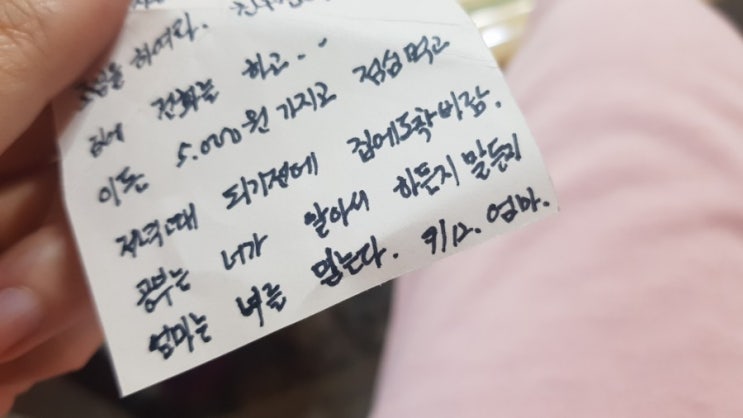 하여라.
전화는 하고..
이돈 5.000원 가지고 점심먹고
저녁때 되기전에 집에도착바람.
공부는 너가 알아서 하든지 말든지
엄마는 너를 믿는다. 9/12. 엄마.